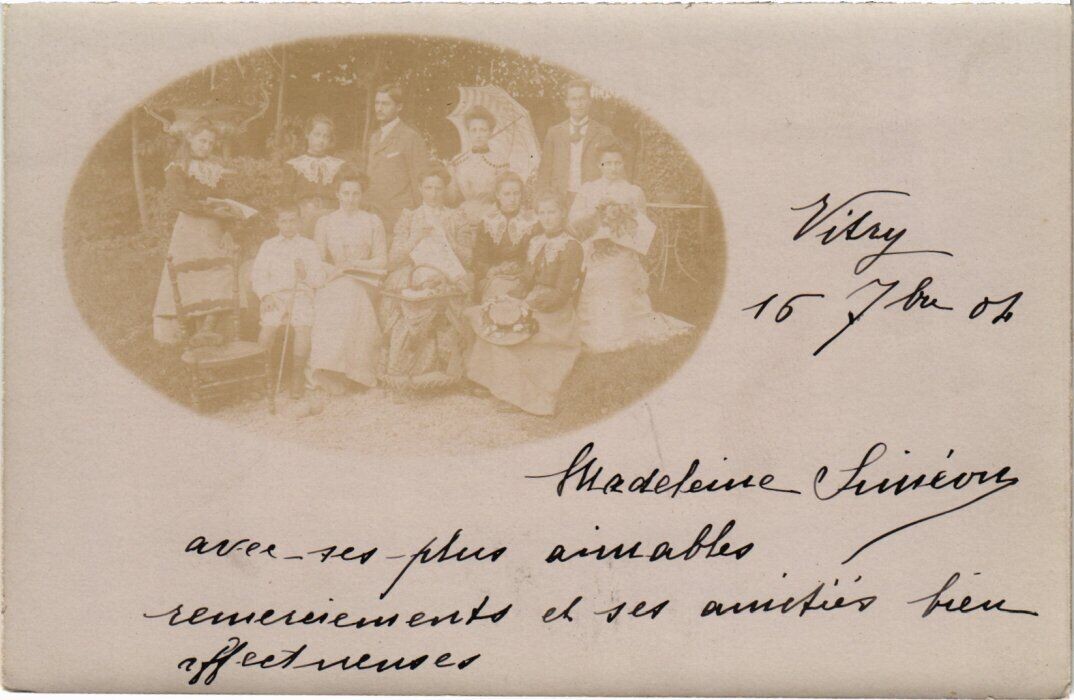 Vitry
16 7bre 04
Madeleine Siméon
avec ses plus aimables
remerciements et ses amitiés bien
affectueuses